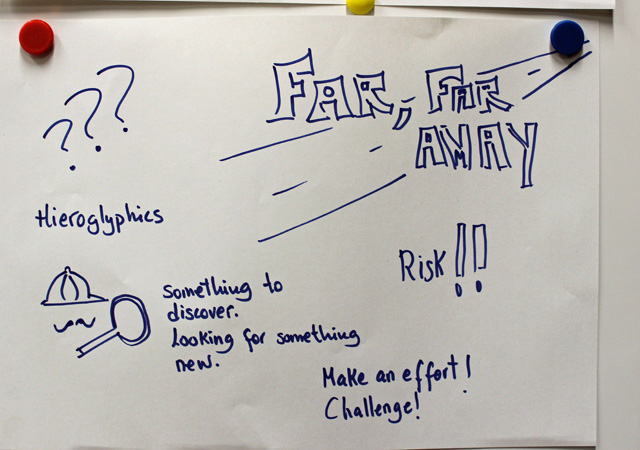 ???
FAR, FAR
AWAY
Hieroglyphics
Risk!!
Something to
discover.
Looking for something
new.
Make an effort!
Challenge!